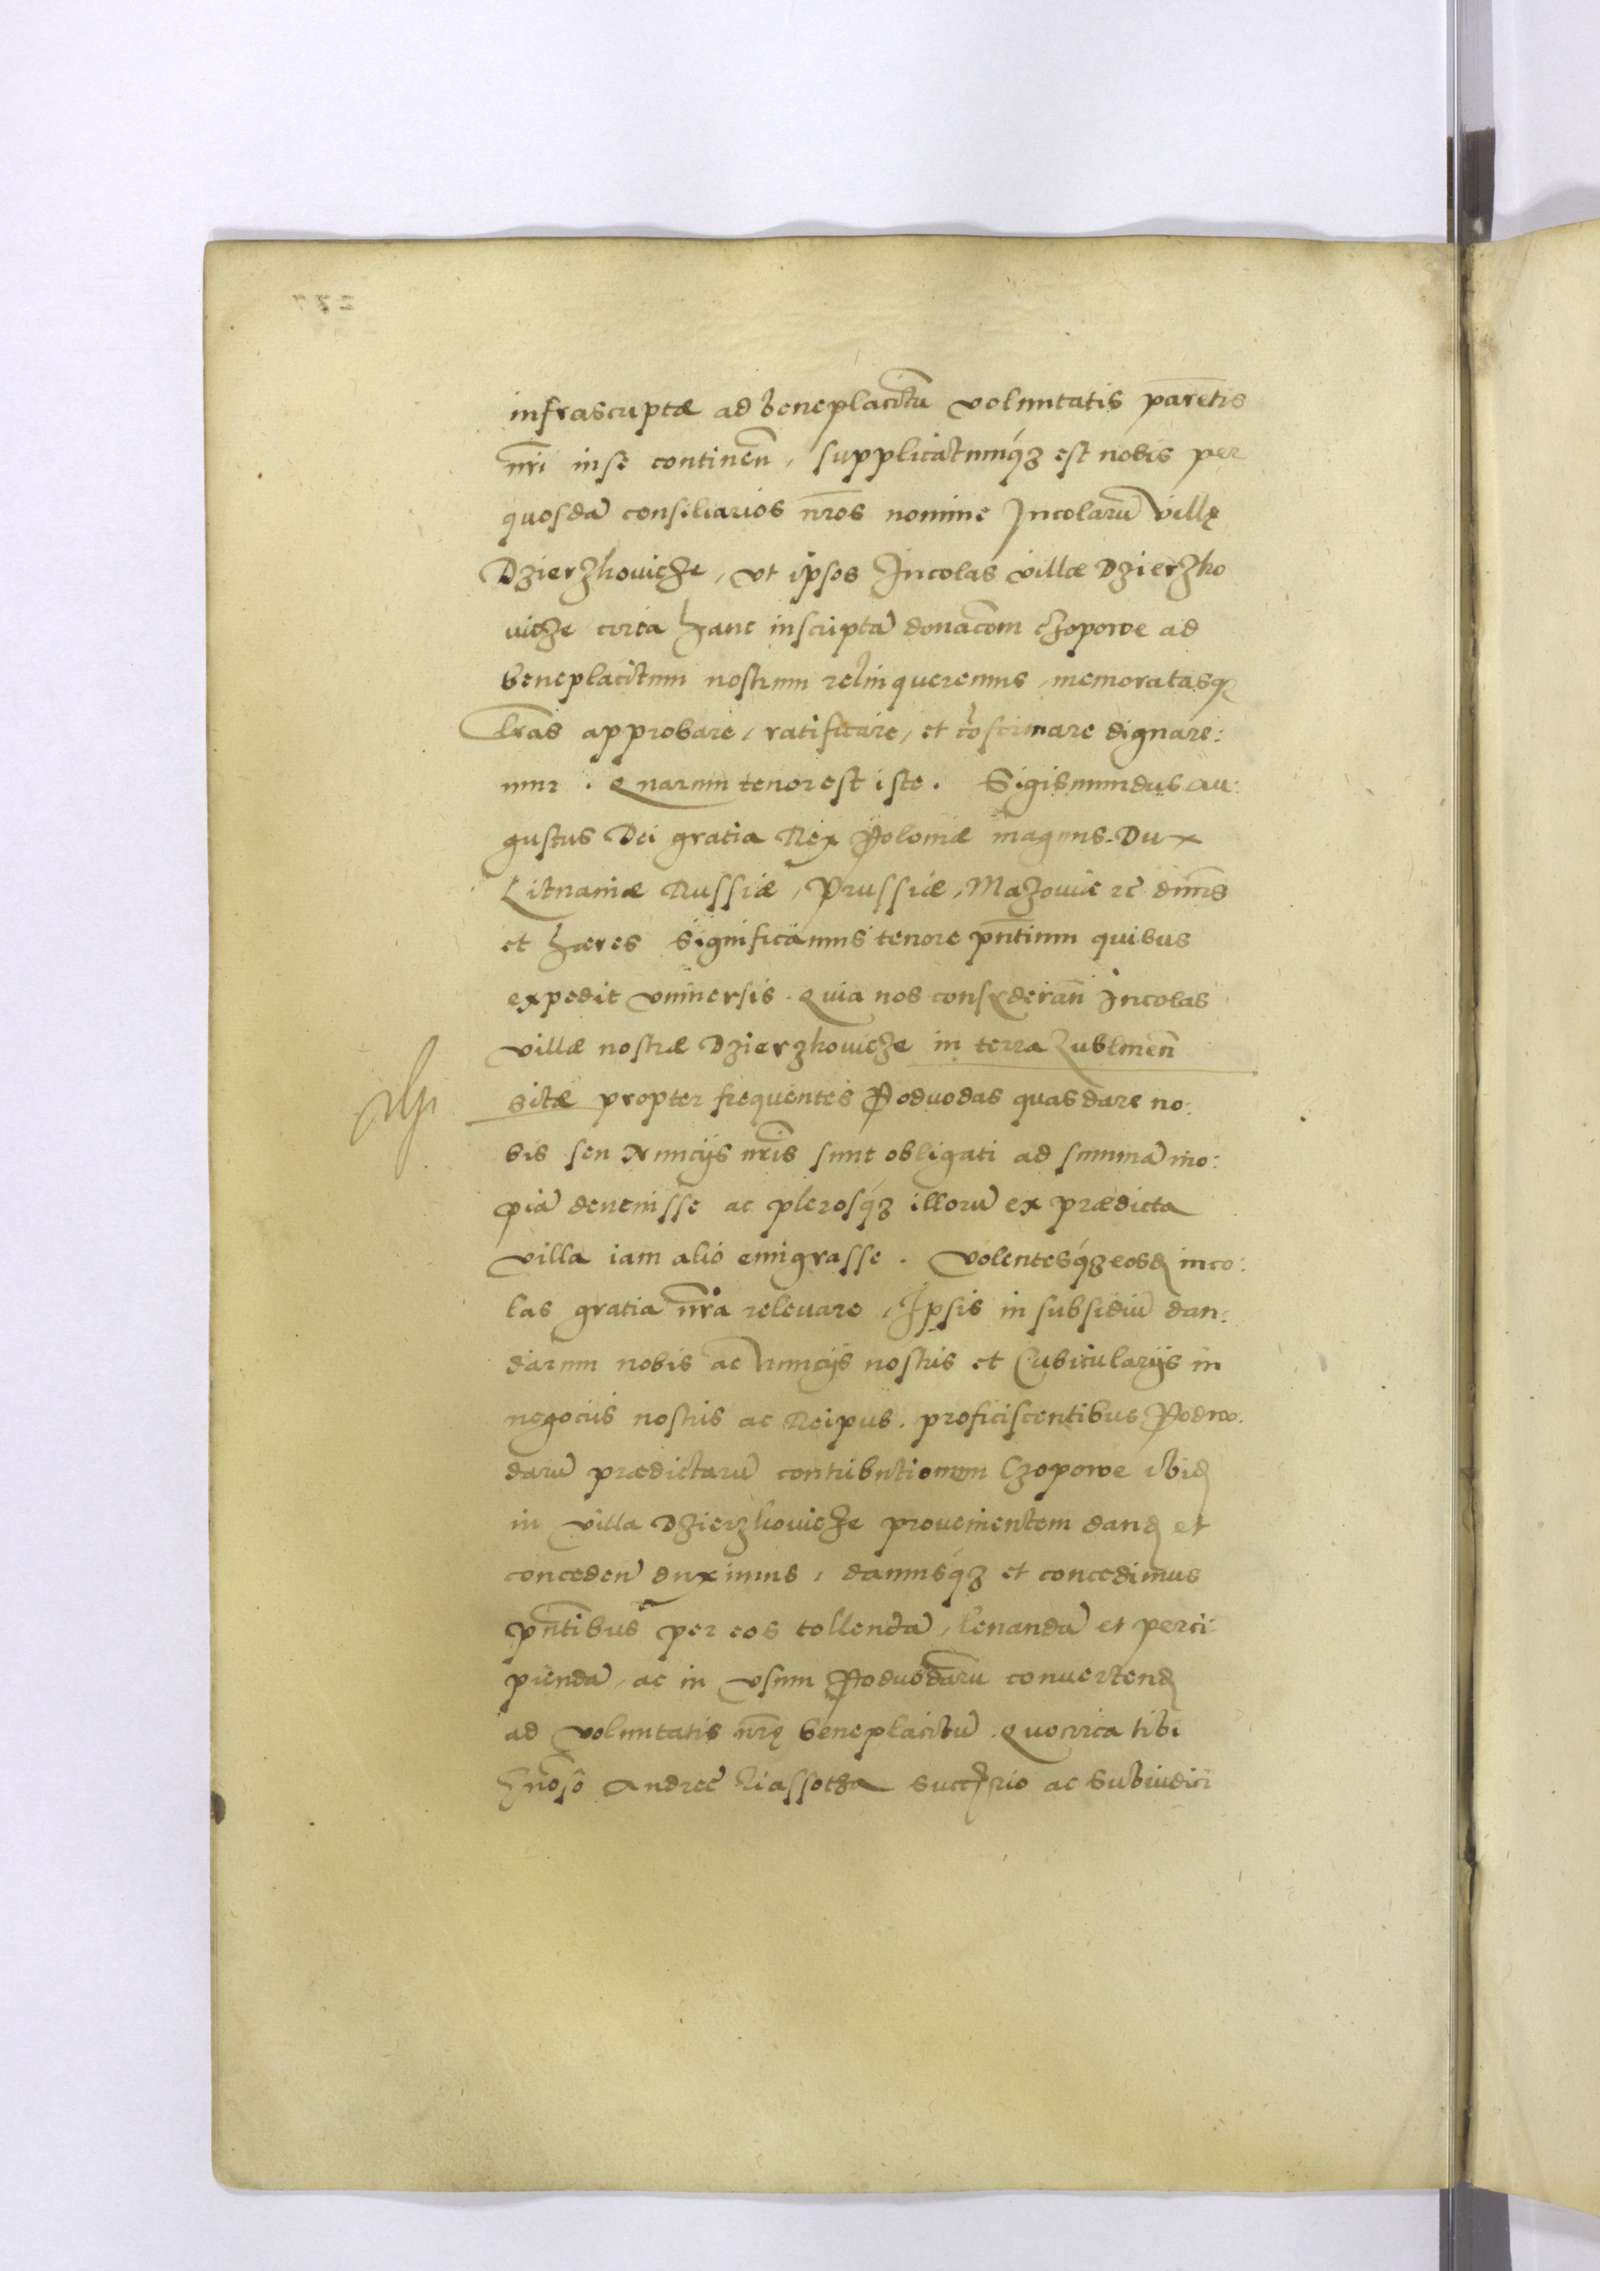 infrascriptæ ad beneplacitū voluntatis parētis
nr̄i in se continen̄, supplicatumq́ꝫ est nobis per
quosdā consiliarios nr̄os nomine Incolarū villę
Dzierzkowicze, vt ipsos Incolas villæ Dzierzko
wicze circa hanc inscriptā donac̄om czopowe ad
beneplacitum nostrum relinqueremus, memoratasqꝫ
lr̄as approbare, ratificare, et cōfirmare dignare:
mur. Quarum tenor est iste. Sigismundus Au:
gustus Dei gratia Rex Poloniæ magnus Dux
Lituaniæ Russiæ, Prussiæ, Mazouiæ ꝛc̄ dn̄us
et hæres Significamus tenore pn̄tium quibus
expedit vniuersis. Quia nos considerān Incolas
villæ nostræ Dzierzkowicze in terra Lublinen̄
sitæ propter frequentes Poduodas quas dare no:
bis seu Nuncijs nr̄is sunt obligati ad summā ino:
piā deuenisse ac plerosq́ꝫ illorū ex prædicta
villa iam alio emigrasse. Volentesq́ꝫ eosd inco:
las gratia nr̄a releuare, Ipsis in subsidiū dan:
darum nobis ac Nuncijs nostris et Cubicularijs in
negociis nostris ac Reipub. proficiscentibus Podwo:
darū prædictarū contributionem Czopowe ibid
in villa Dzierzkowicze prouenientem dand et
conceden̄ duximus, damusq́ꝫ et concedimus
pn̄tibus per eos tollendā, leuandā et perci:
piendā, ac in vsum Poduodarū conuertend
ad voluntatis nr̄ę beneplacitū. Quocirca tibi
Gn̄oso Andreæ Kiassotha succ̄rio ac Subiudici